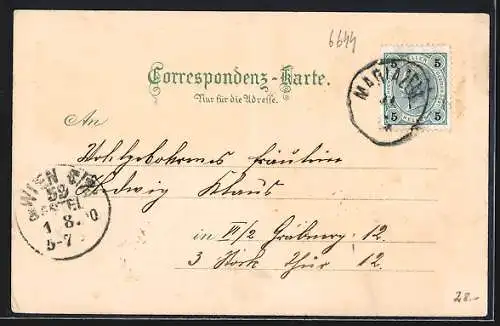 6644
Correspondenz-Karte.
Nur für die Adresse.
5 5
5 5
MARIAZELL
An
Wohlgebohrenes Fräulein
Hedwig Klaus
in II/2 12.
3 Stock Thür 12.
WIEN
52
BESTELLT
1 8. 00
5-7
28.-